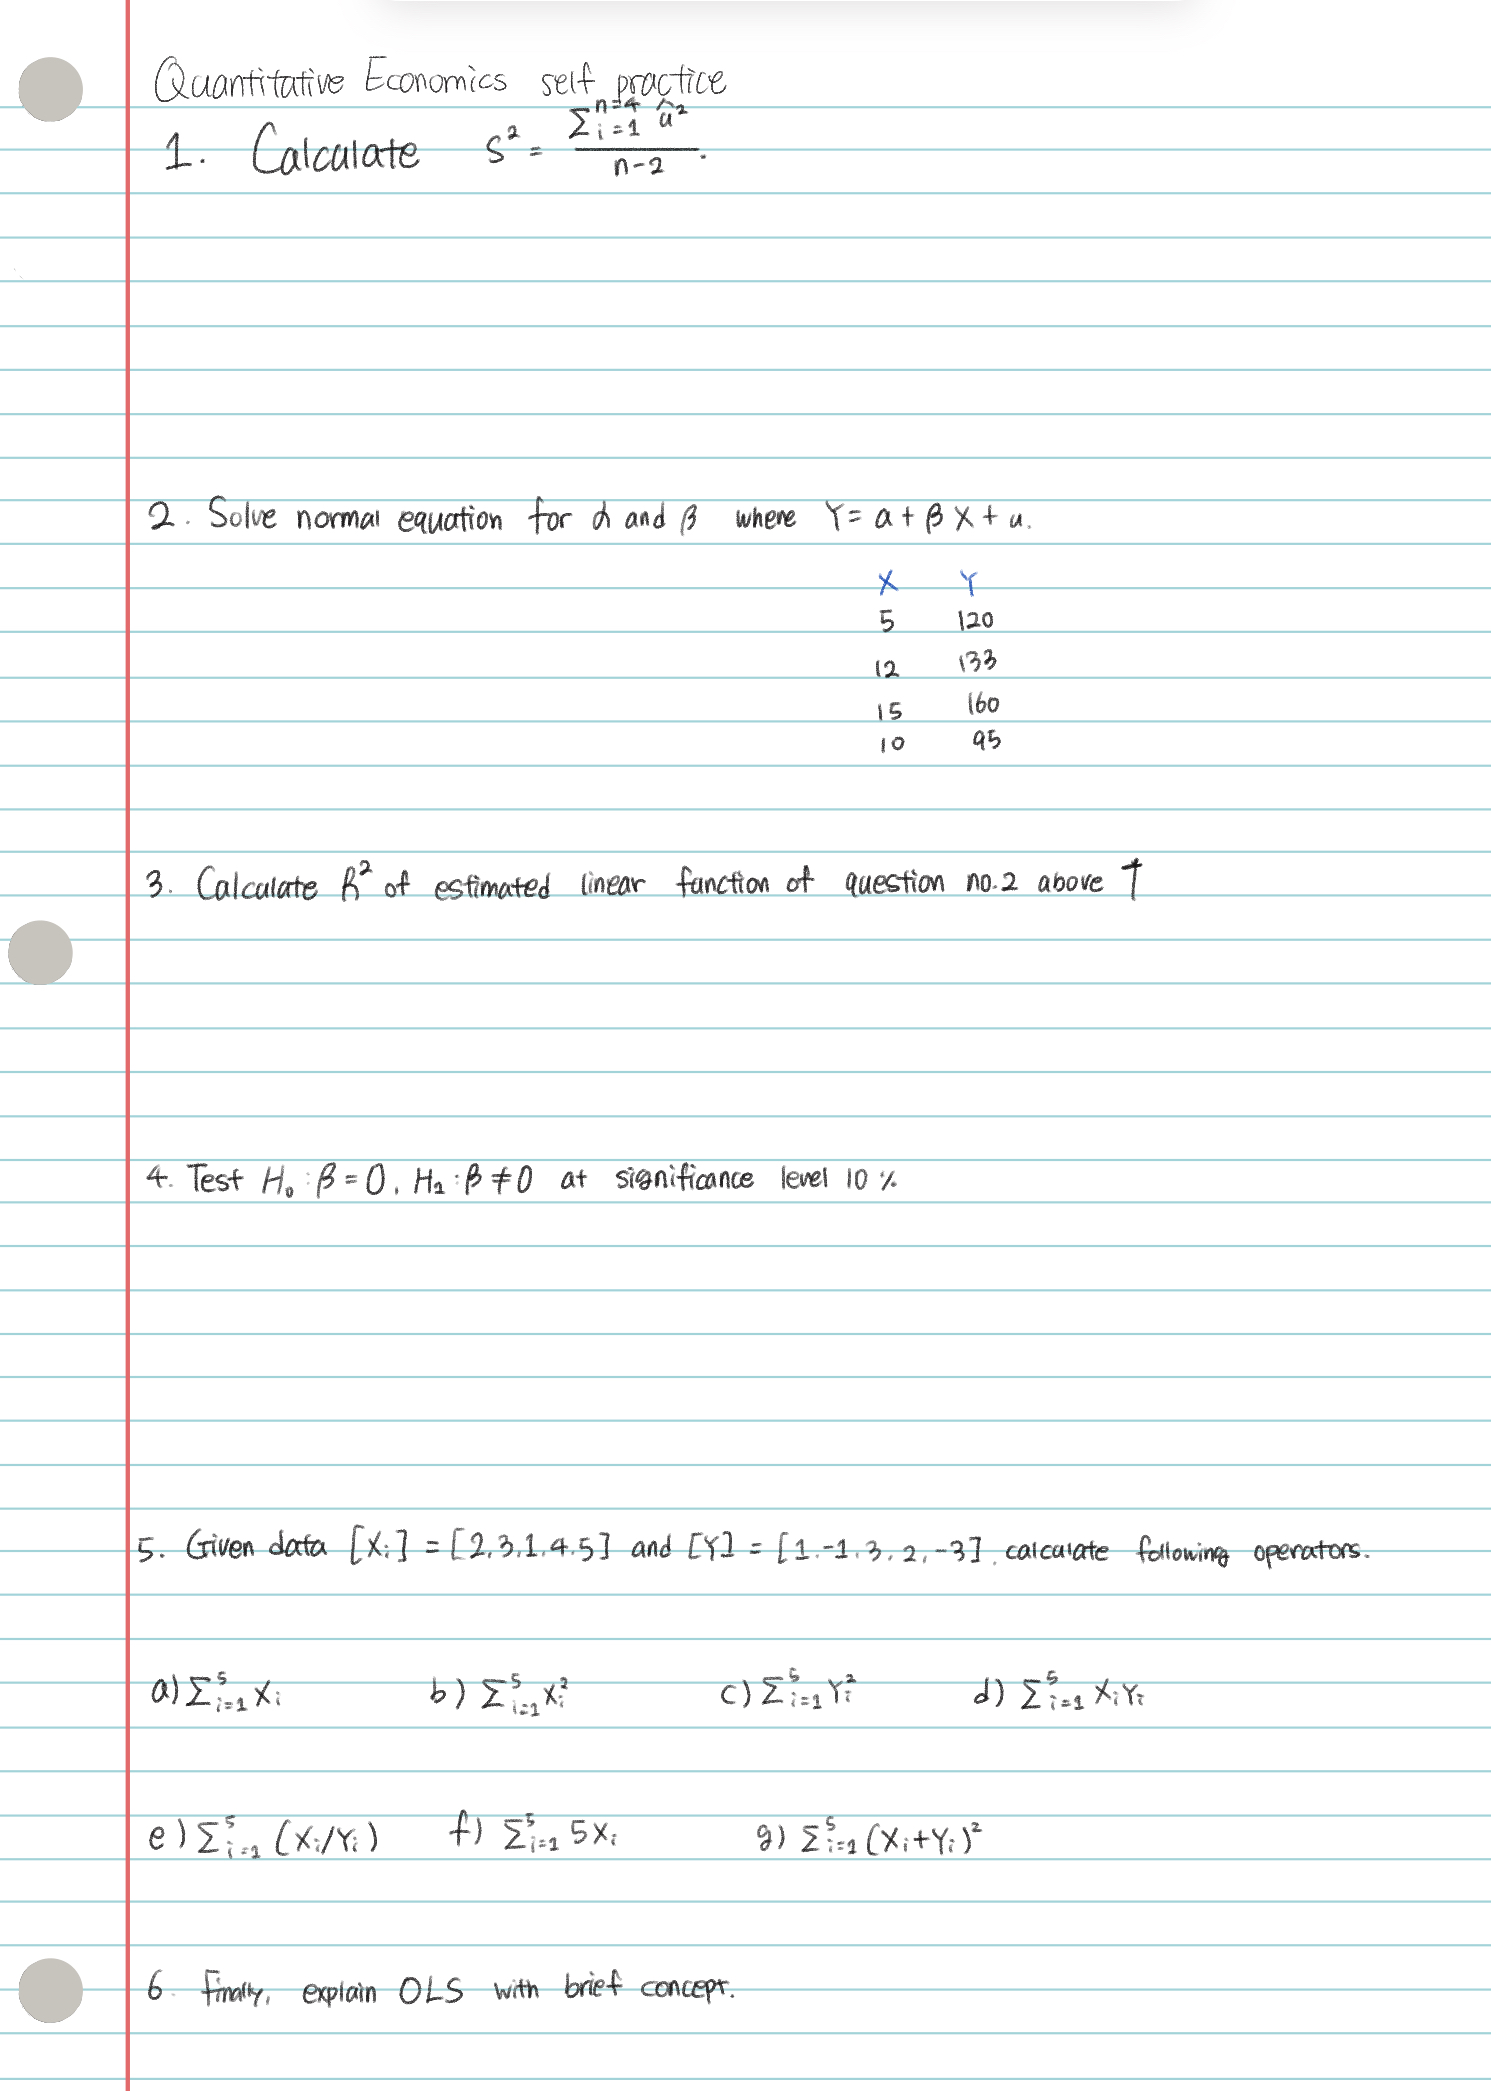 Quantitative Economics self practice
1. Calculate S² = Σᵢ₌₁ⁿ⁼⁴ û² / n-2.
2. Solve normal equation for α and β where Y = α + β X + u.
X Y
5 120
12 133
15 160
10 95
3. Calculate R² of estimated linear function of question no.2 above ↑
4. Test H₀ : β = 0, H₁ : β ≠ 0 at significance level 10 %
5. Given data [Xᵢ] = [2,3,1,4,5] and [Y] = [1,-1,3,2,-3], calculate following operators.
a) Σ⁵ᵢ₌₁ Xᵢ b) Σ⁵ᵢ₌₁ Xᵢ² c) Σ⁵ᵢ₌₁ Yᵢ² d) Σ⁵ᵢ₌₁ XᵢYᵢ
e) Σ⁵ᵢ₌₁ (Xᵢ/Yᵢ) f) Σ⁵ᵢ₌₁ 5Xᵢ g) Σ⁵ᵢ₌₁ (Xᵢ+Yᵢ)²
6. Finally, explain OLS with brief concept.